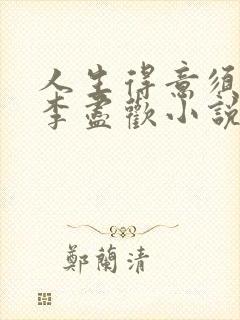 人生得意须
李盡歡小説
鄭蘭清